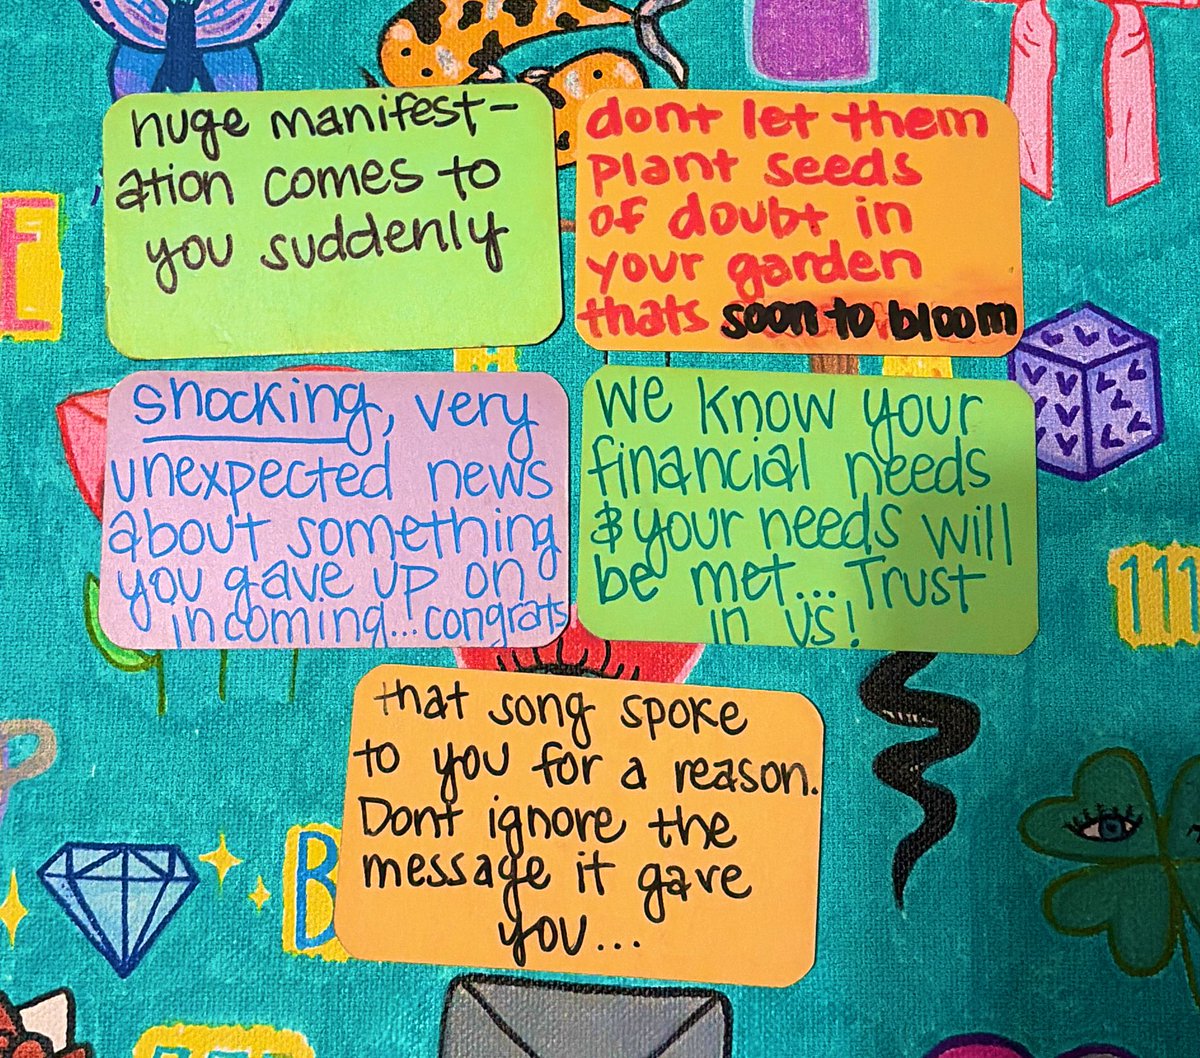 huge manifest-
ation comes to
you suddenly
dont let them
plant seeds
of doubt in
your garden
thats soon to bloom
shocking, very
unexpected news
about something
you gave up on
incoming...congrats
we know your
financial needs
& your needs will
be met... Trust
in us!
that song spoke
to you for a reason.
Dont ignore the
message it gave
you...
111
B